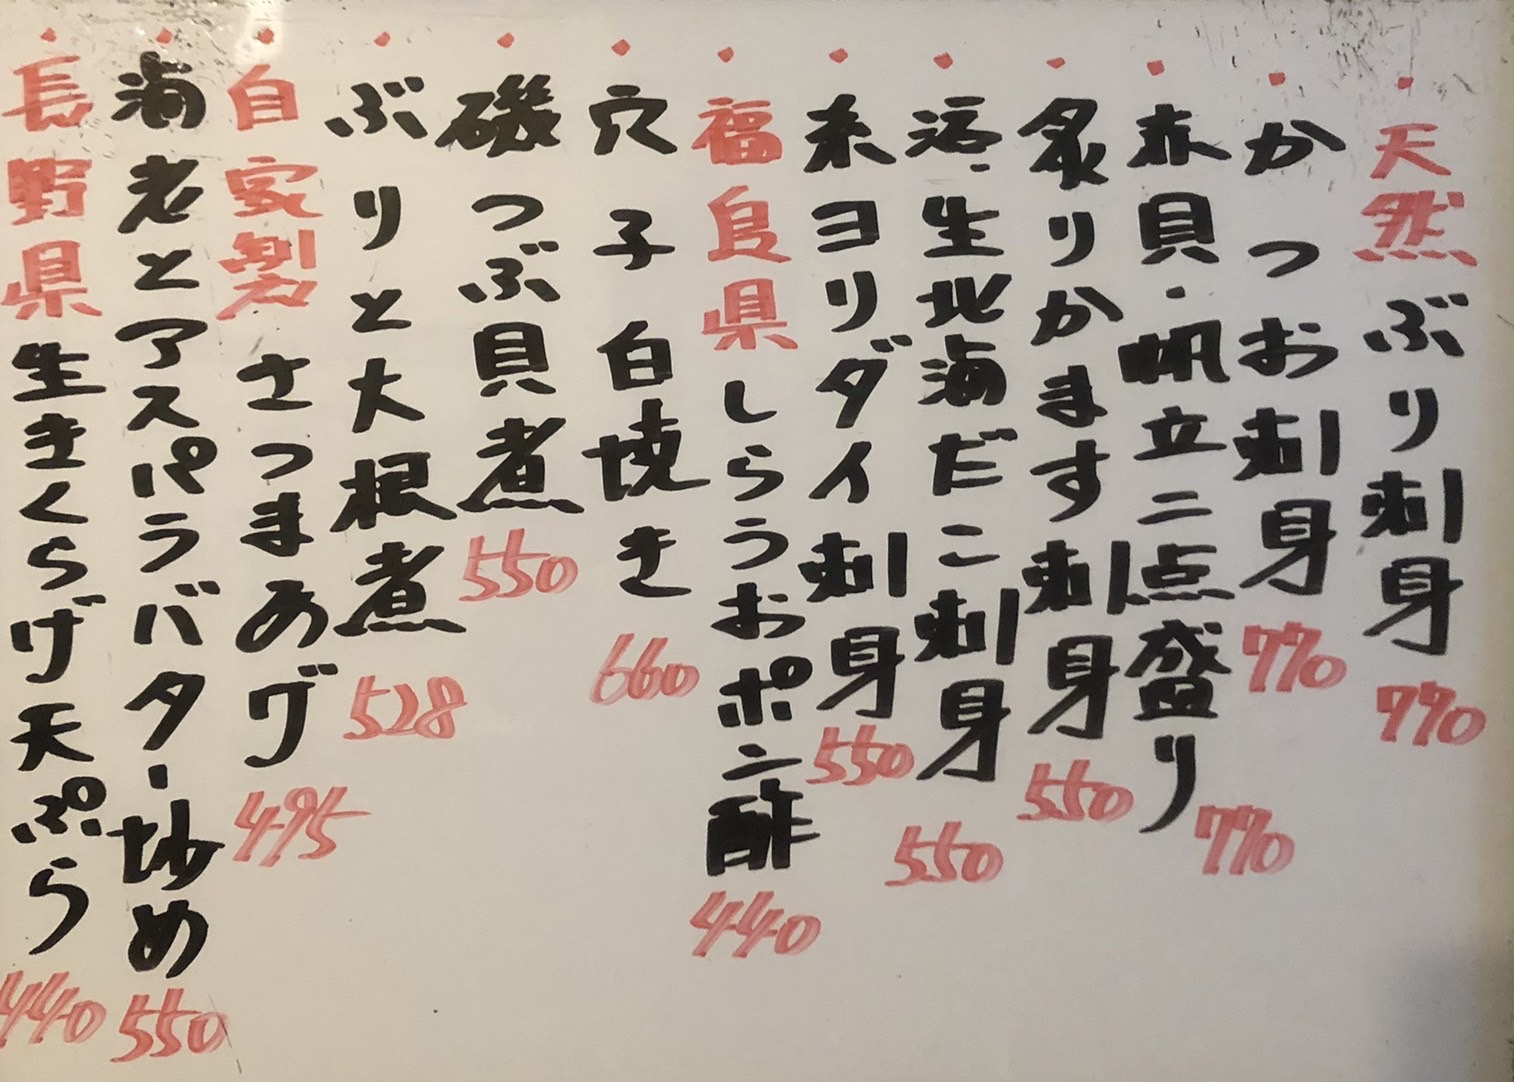 天然ぶり刺身 770
かつお刺身 770
赤貝・帆立二点盛り 770
炙りかます刺身 550
活・生北海だこ刺身 550
糸ヨリダイ刺身 550
福島県しらうおポン酢 440
穴子白焼き 660
磯つぶ貝煮 550
ぶりと大根煮 528
自家製さつまあげ 495
海老とアスパラバター炒め 550
長野県生きくらげ天ぷら 440